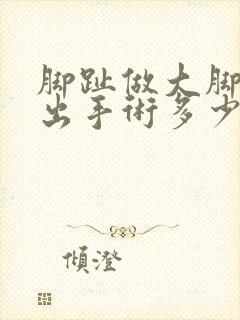 脚趾做大脚
出手術多少
傾澄